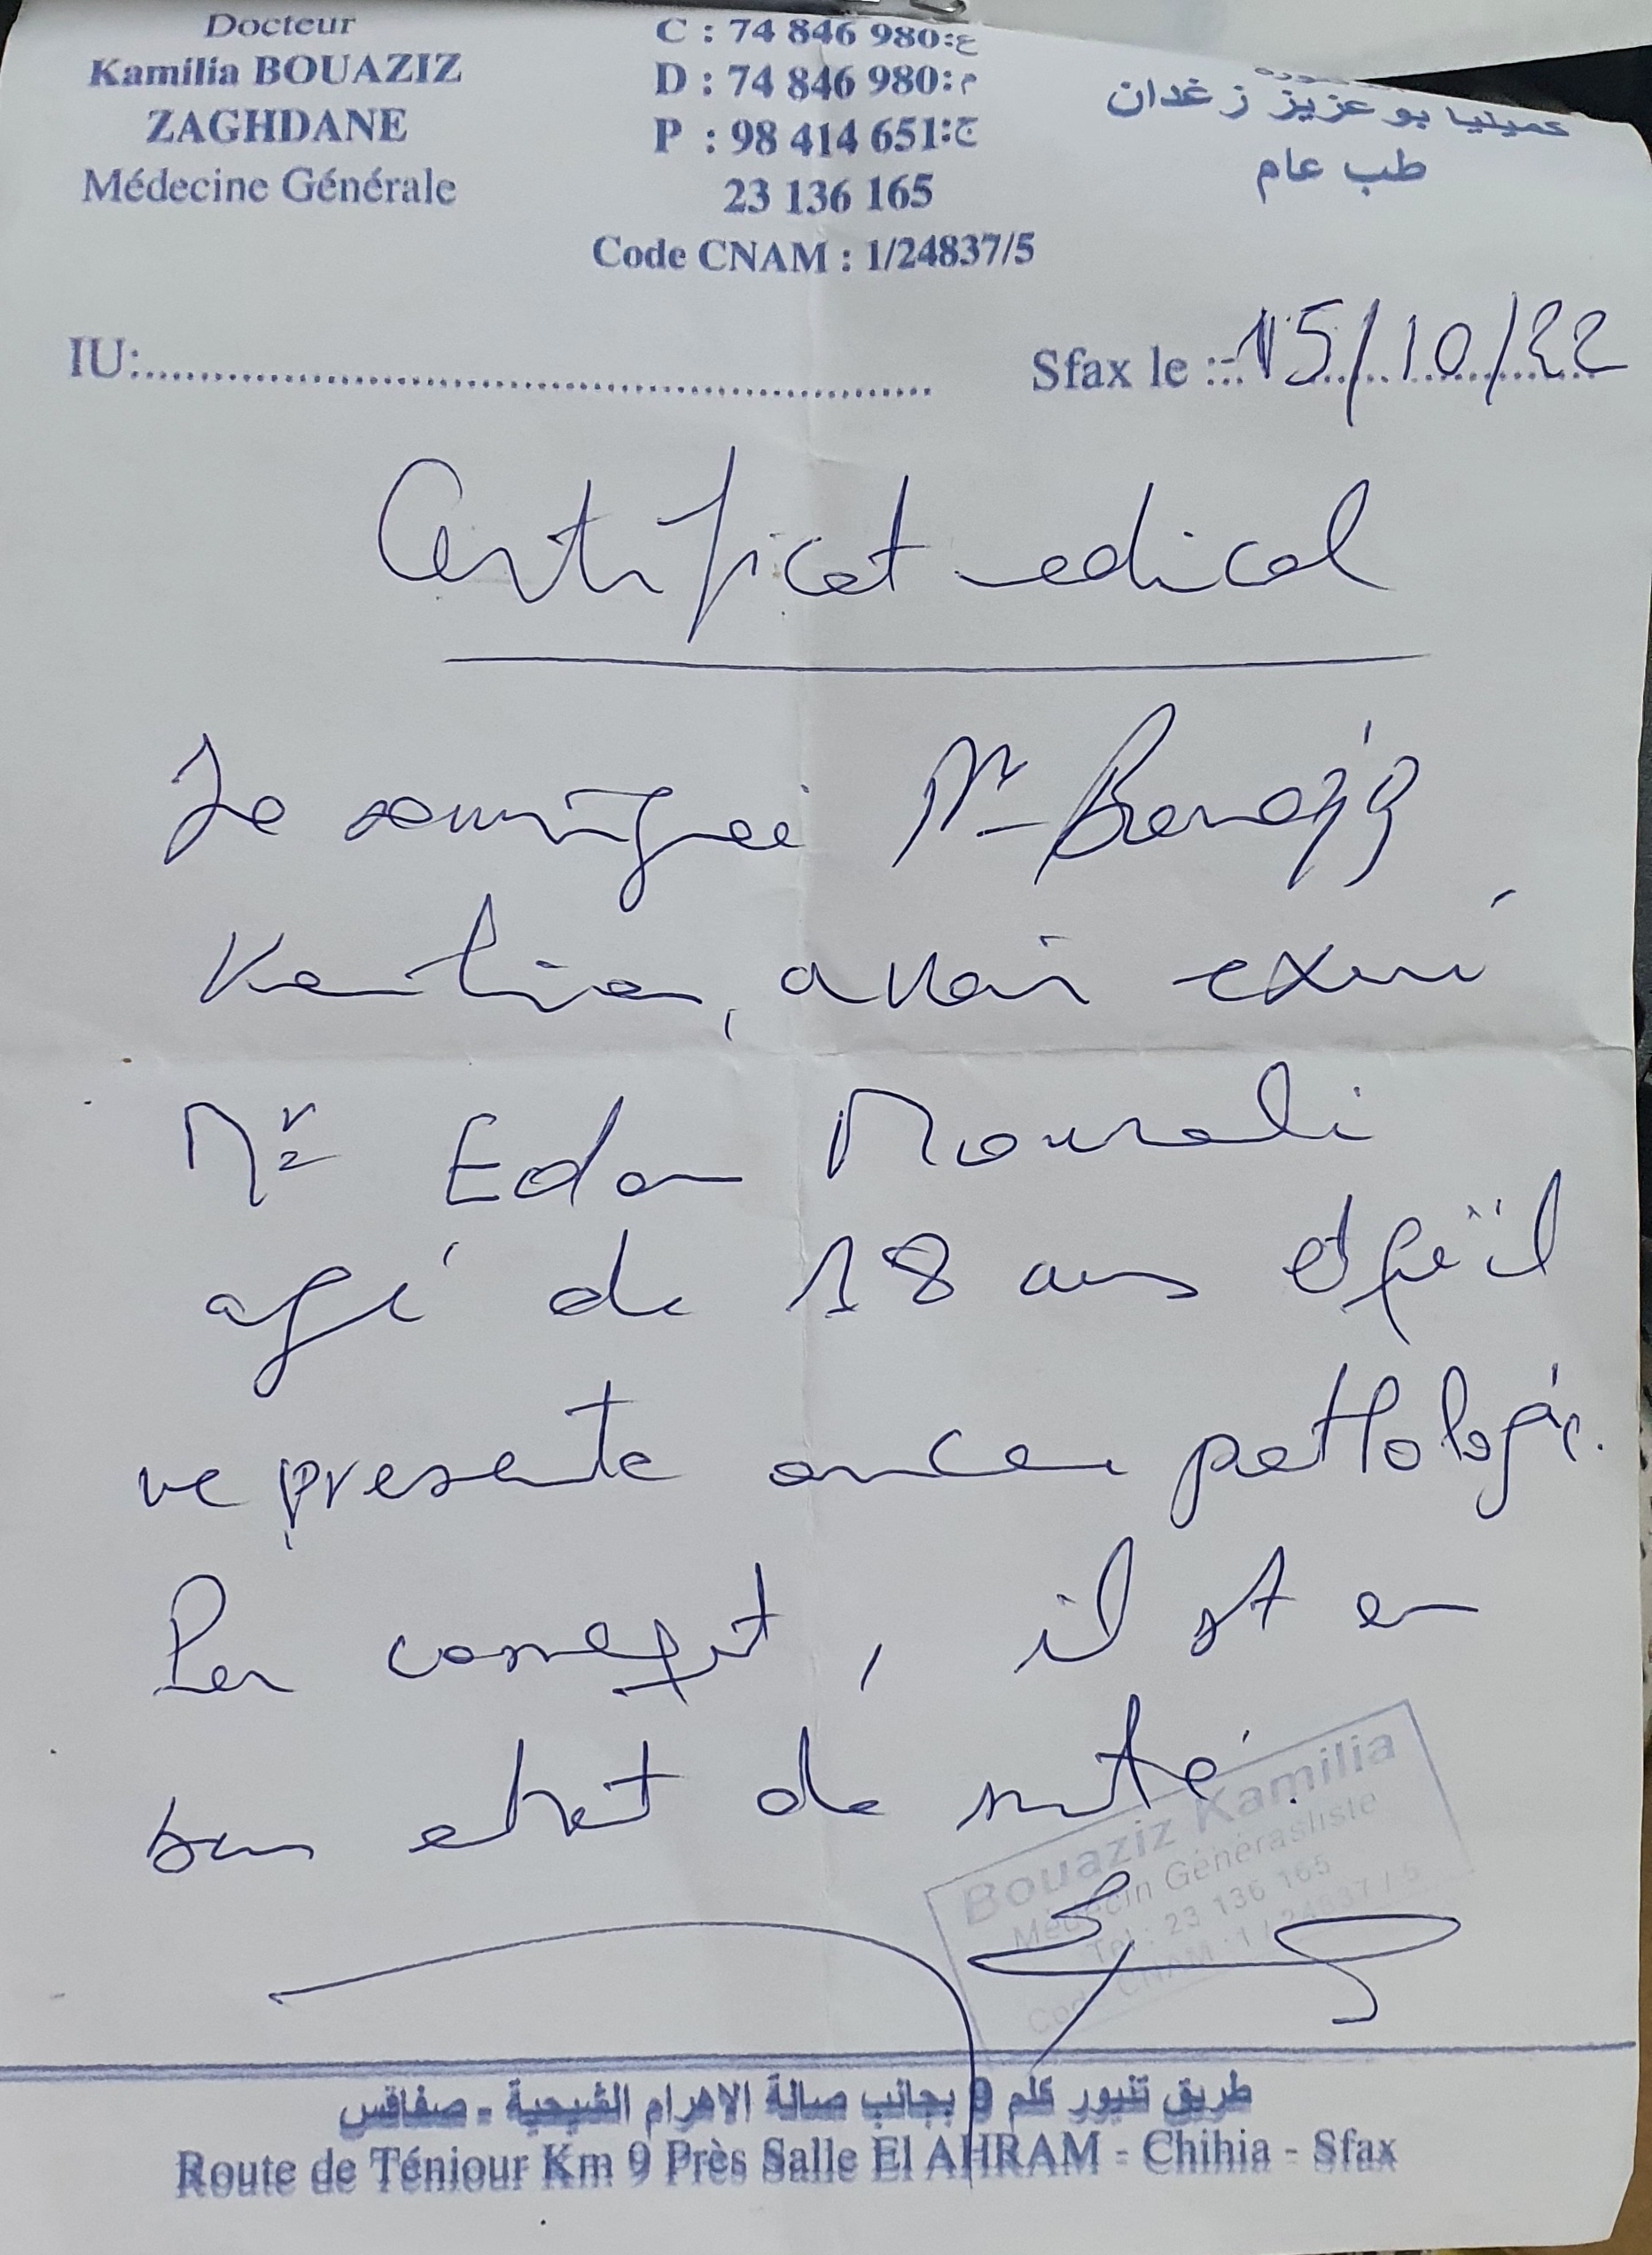 Docteur
Kamilia BOUAZIZ
ZAGHDANE
Médecine Générale
C : 74 846 980:ع
D : 74 846 980:م
P : 98 414 651:ج
23 136 165
Code CNAM : 1/24837/5
كميليا بوعزيز زغدان
طب عام
IU:
Sfax le : 15/10/22
Certificat medical
Je soussignée Dr Bouaziz
Kamilia, avoir examiné
Mr Edam Mourali
agé de 18 ans et qu'il
ne presente aucune pathologie.
Par consequent, il est en
bon etat de santé.
Bouaziz Kamilia
Médecin Générasliste
Tel : 23 136 165
Code CNAM : 1 / 24837 / 5
طريق تنيور كلم 9 بجانب صالة الاهرام الشيحية - صفاقس
Route de Téniour Km 9 Près Salle El AHRAM - Chihia - Sfax